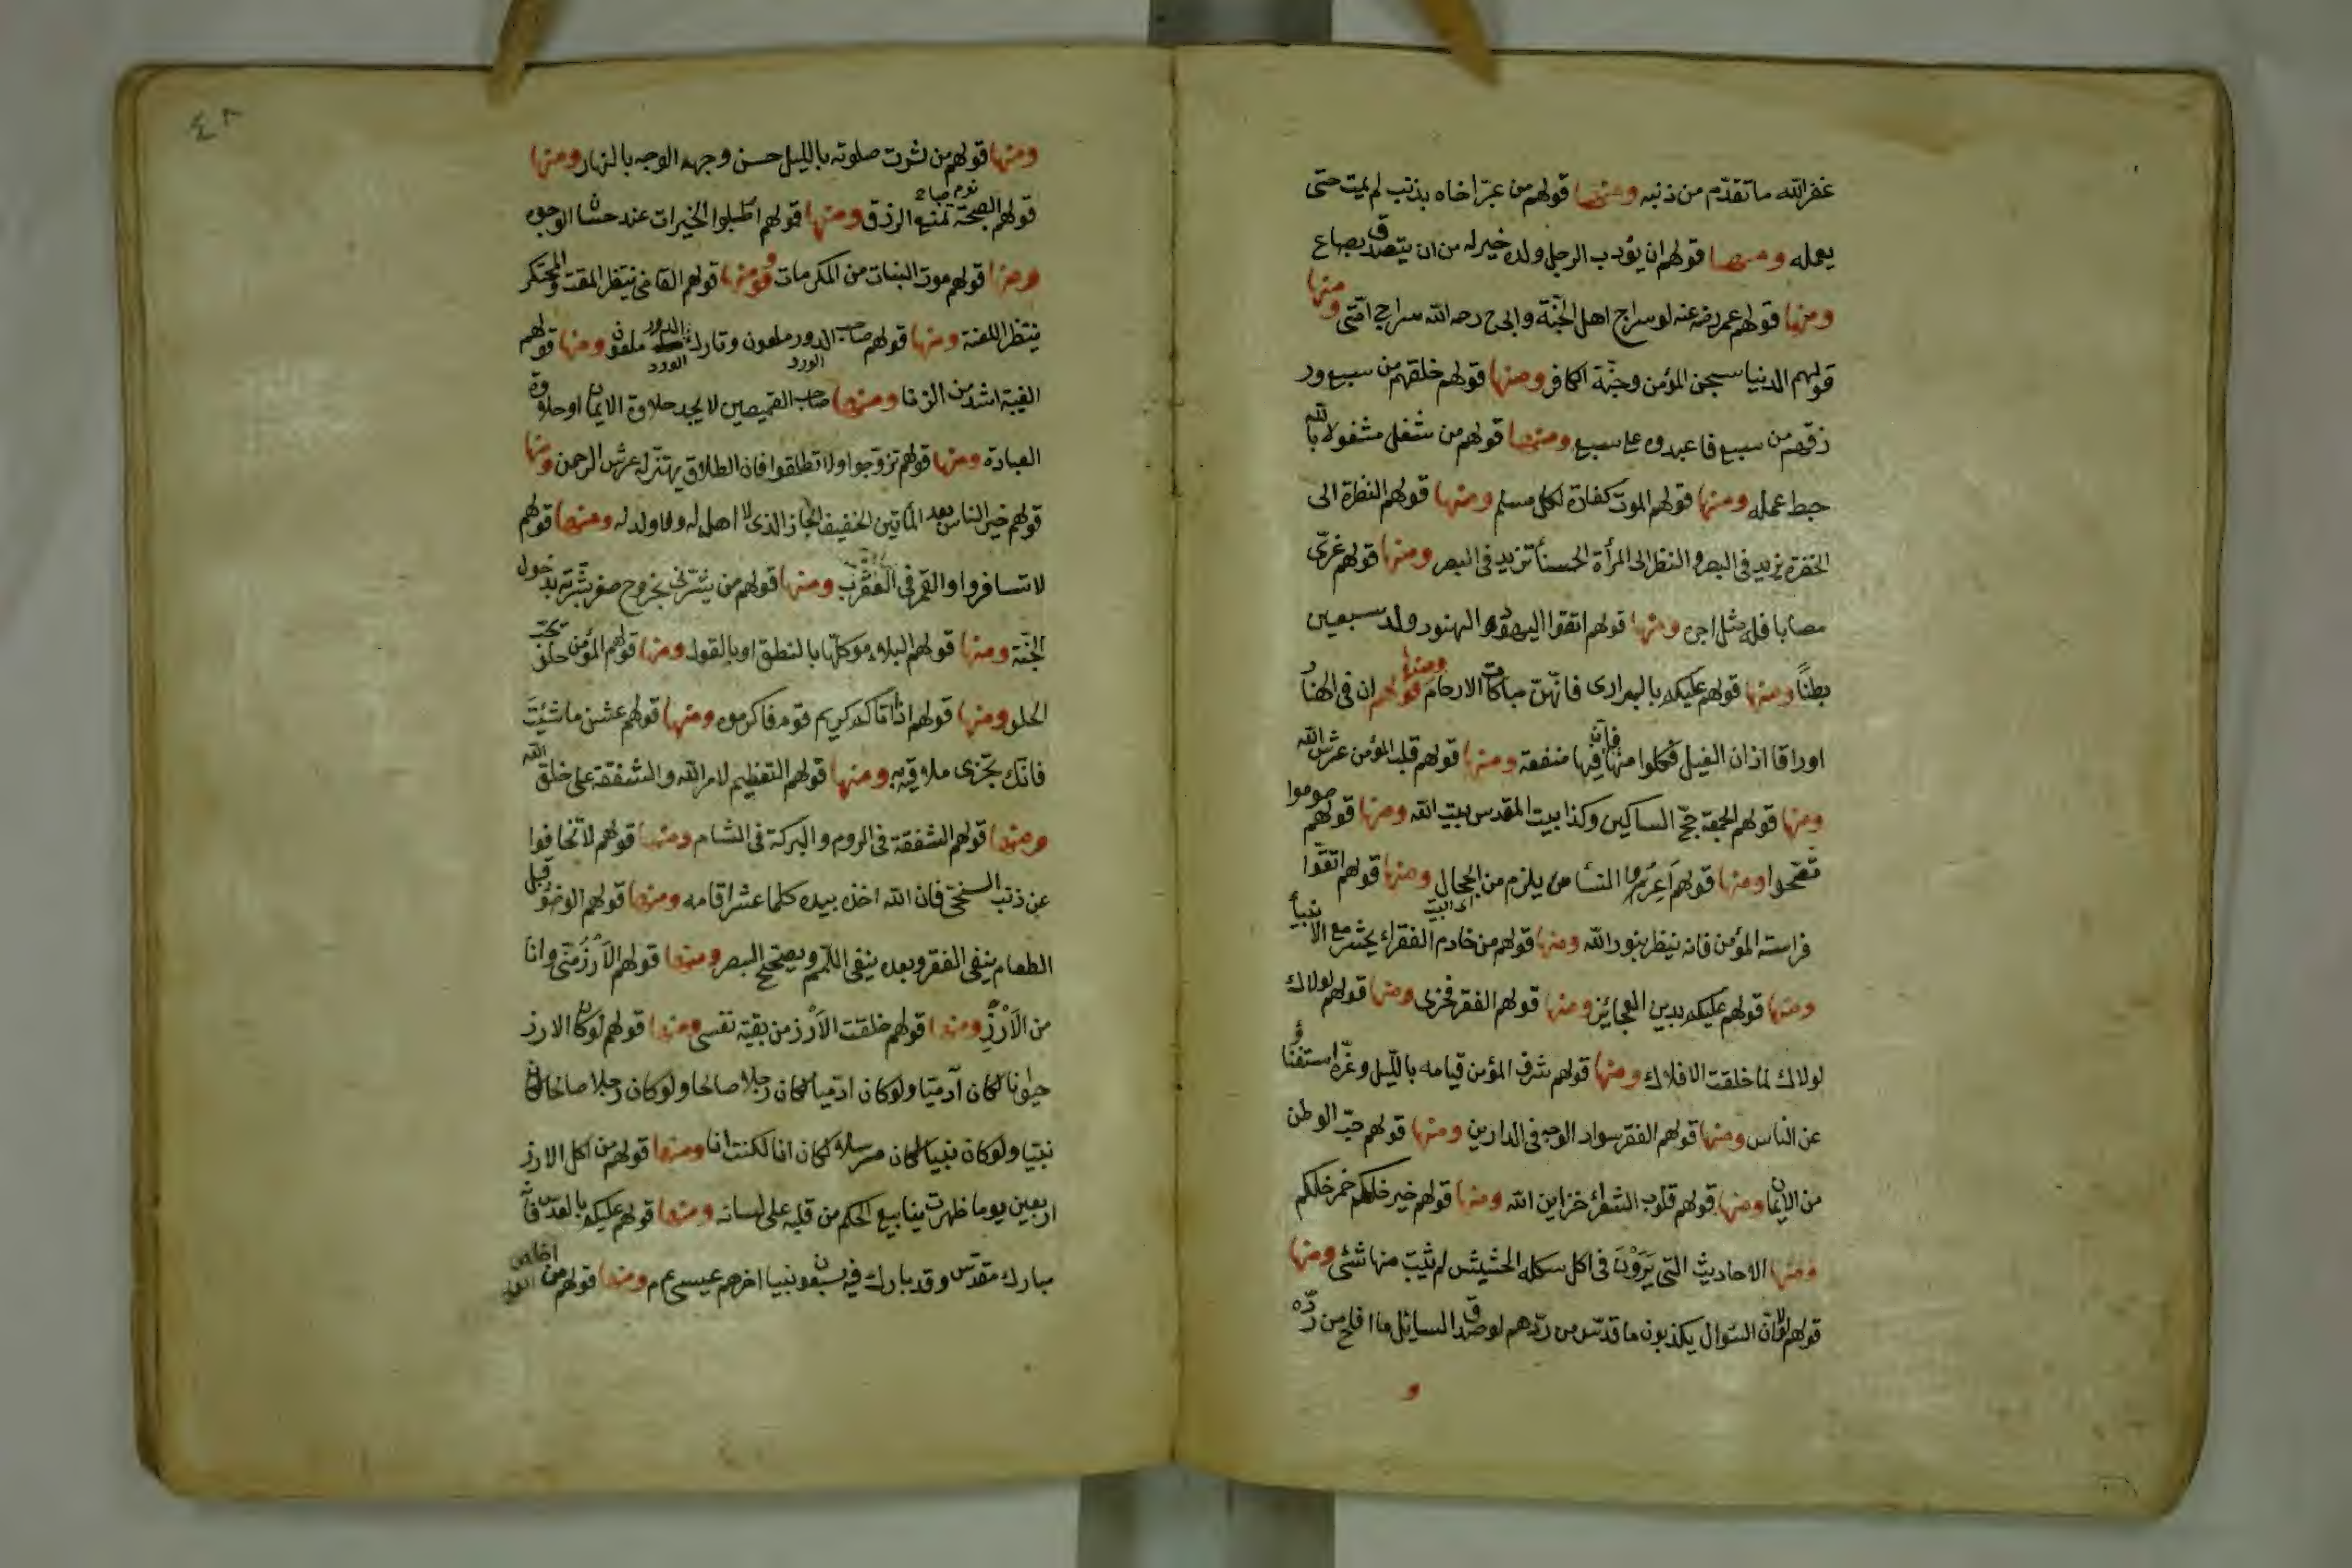 غفر الله ما تقدّم من ذنبه ومنها قولهم من عيّر اخاه بذنب لم يمت حتى
يعمله ومنها قولهم ان يؤدب الرجل ولده خير له من ان يتصدق بصاع
ومنها قولهم عمر رضه عنه لو سراج اهل الجنّة وابى ح رحه الله سراج امّتى ومنها
قولهم الدنيا سجن المؤمن وجنّة الكافر ومنها قولهم خلقهم من سبع ور
زقهم من سبع فاعبدوه على سبع ومنها قولهم من شغل مشغولا بالله
حبط عمله ومنها قولهم الموت كفارة لكل مسلم ومنها قولهم النظرة الى
الخضرة يزيد فى البصر والنظر الى المرأة الحسنأ تزيد فى البصر ومنها قولهم عزّى
مصابا فله مثل اجره ومنها قولهم اتقوا اليهود والهنود ولد سبعين
بطنًا ومنها قولهم عليكم بالسرارى فانّهنّ مباركات الارحام ومنها قولهم ان فى
اوراقا اذان الفيل فكلوا منها فان فيها منفعة ومنها قولهم قلب المؤمن عرش الله
ومنها قولهم الجمعة حجّ المساكين وكذا بيت المقدس بيت الله ومنها قولهم صوموا
تصحّوا ومنها قولهم النسأ يلزمن الحجال اى البيت ومنها قولهم اتقوا
فراسة المؤمن فانه ينظر بنور الله ومنها قولهم من خادم الفقراء يحشر مع الانبيأ
ومنها قولهم عليكم بدين العجايز ومنها قولهم الفقر فخرى ومنها قولهم لولاك
لولاك لما خلقت الافلاك ومنها قولهم شرف المؤمن قيامه بالليل وعزّه استغناؤ
عن الناس ومنها قولهم الفقر سواد الوجه فى الدارين ومنها قولهم حبّ الوطن
من الايمان ومنها قولهم قلوب الشعرأ خزاين الله ومنها قولهم خير خلكم خمر خلكم
ومنها الاحاديث التى يَرَوْنَ فى اكل الحشيش لم يثبت منها شئ ومنها
قولهم لولا ان السّوال يكذبون ما قدّس من ردّهم لو صدق السايل ما افلح من ردّه
و
٤٣
ومنها قولهم من كثرت صلوته بالليل حسن وجهه الوجه بالنهار ومنها
قولهم الصبحة نوم صباح تمنع الرزق ومنها قولهم اطلبوا الخيرات عند حسان الوجوه
ومنها قولهم موت البنات من المكرمات ومنها قولهم القاضى ينتظر المقت والمحتكر
ينتظر اللعنة ومنها قولهم صاحب الدور الورد ملعون وتارك الدور الورد ملعون ومنها قولهم
الغيبة اشدّ من الزنا ومنها صاحب القميصين لا يجد حلاوة الايمان او حلاوة
العبادة ومنها قولهم تزوّجوا ولا تطلقوا فان الطلاق يهتزّ له عرش الرحمن ومنها
قولهم خير الناس بعد المأتين الخفيف الحاذ الذى لا اهل له ولا ولد له ومنها قولهم
لا تسافروا والقمر فى العقرب ومنها قولهم من بشّرنى بخروج صفر بشّرته بدخول
الجنّة ومنها قولهم البلاء موكّل بالنطق او بالقول ومنها قولهم المؤمن حلو يحبّ
الحلو ومنها قولهم اذا اتاكم كريم قوم فاكرموه ومنها قولهم عش ما شئت
فانّك تجزى ملاقيه ومنها قولهم التعظيم لامر الله والشفقة على خلق الله
ومنها قولهم الشفقة فى الروم والبركة فى الشام ومنها قولهم لا تخافوا
عن ذنب السخىّ فان الله اخذ بيده كلما عثر اقامه ومنها قولهم الوضوُ قبل
الطعام ينفى الفقر وبعده ينفى اللمم ويصحّح البصر ومنها قولهم الأرزُ منّى وانا
من الأَرْزِ ومنها قولهم خلقت الأرز من بقيّة نفسى ومنها قولهم لو كان الارز
حيوانا لكان آدميّا ولو كان ادميا لكان رجلا صالحا ولو كان رجلا صالحا لكان
نبيّا ولو كان نبيا لكان مرسلا ولو كان مرسلا لكان انا لكنت انا ومنها قولهم من اكل الارز
اربعين يوما ظهرت ينابيع الحكم من قلبه على لسانه ومنها قولهم عليكم بالعدس فانّه
مبارك مقدّس وقد بارك فيه سبعون نبيا اخرهم عيسى ع م ومنها قولهم من